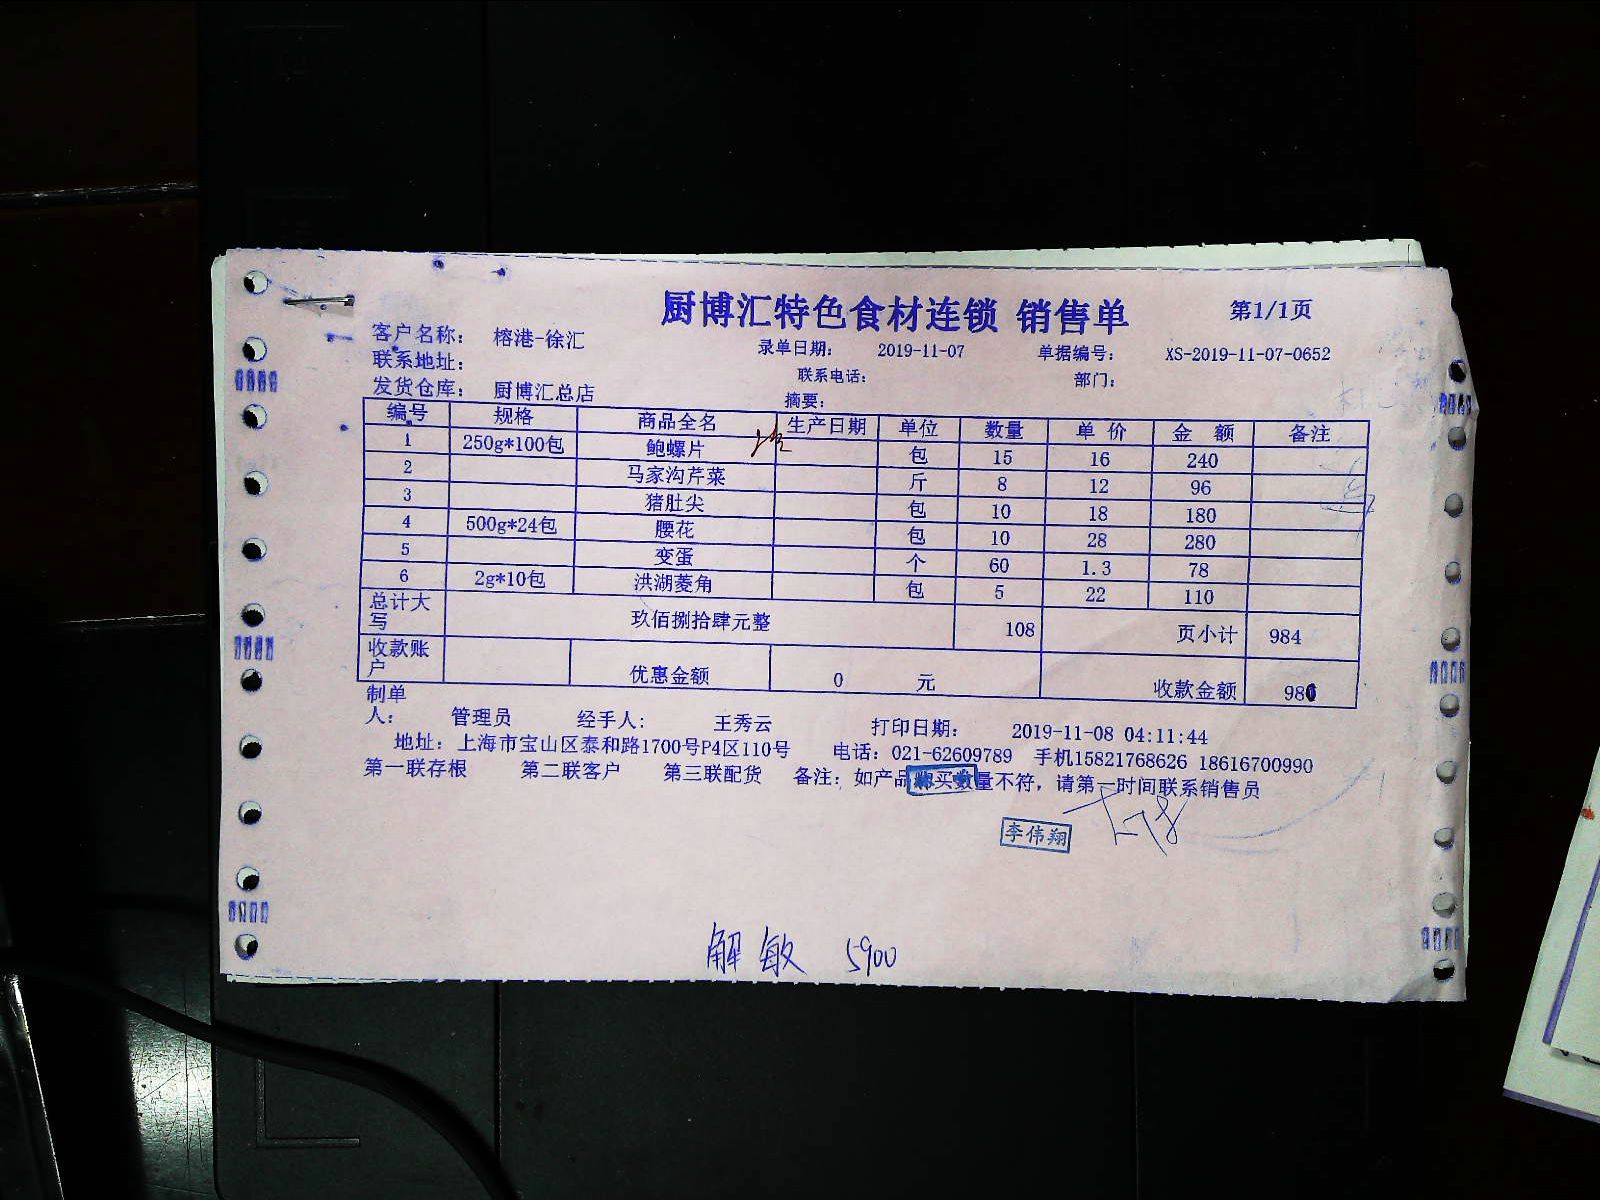 厨博汇特色食材连锁 销售单 第1/1页
客户名称： 榕港-徐汇 录单日期： 2019-11-07 单据编号： XS-2019-11-07-0652
联系地址： 联系电话： 部门：
发货仓库： 厨博汇总店 摘要：
编号 规格 商品全名 生产日期 单位 数量 单价 金额 备注
1 250g*100包 鲍螺片 包 15 16 240
2 马家沟芹菜 斤 8 12 96
3 猪肚尖 包 10 18 180
4 500g*24包 腰花 包 10 28 280
5 变蛋 个 60 1.3 78
6 2g*10包 洪湖菱角 包 5 22 110
总计大写 玖佰捌拾肆元整 108 页小计 984
收款账户 优惠金额 0 元 收款金额 98
制单人： 管理员 经手人： 王秀云 打印日期： 2019-11-08 04:11:44
地址：上海市宝山区泰和路1700号P4区110号 电话：021-62609789 手机15821768626 18616700990
第一联存根 第二联客户 第三联配货 备注：如产品购买数量不符，请第一时间联系销售员
李伟翔
解敏 5900